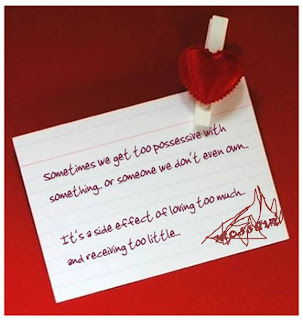 sometimes we get too possessive with
something.. or someone we don't even own..
It's a side effect of loving too much..
and receiving too little..